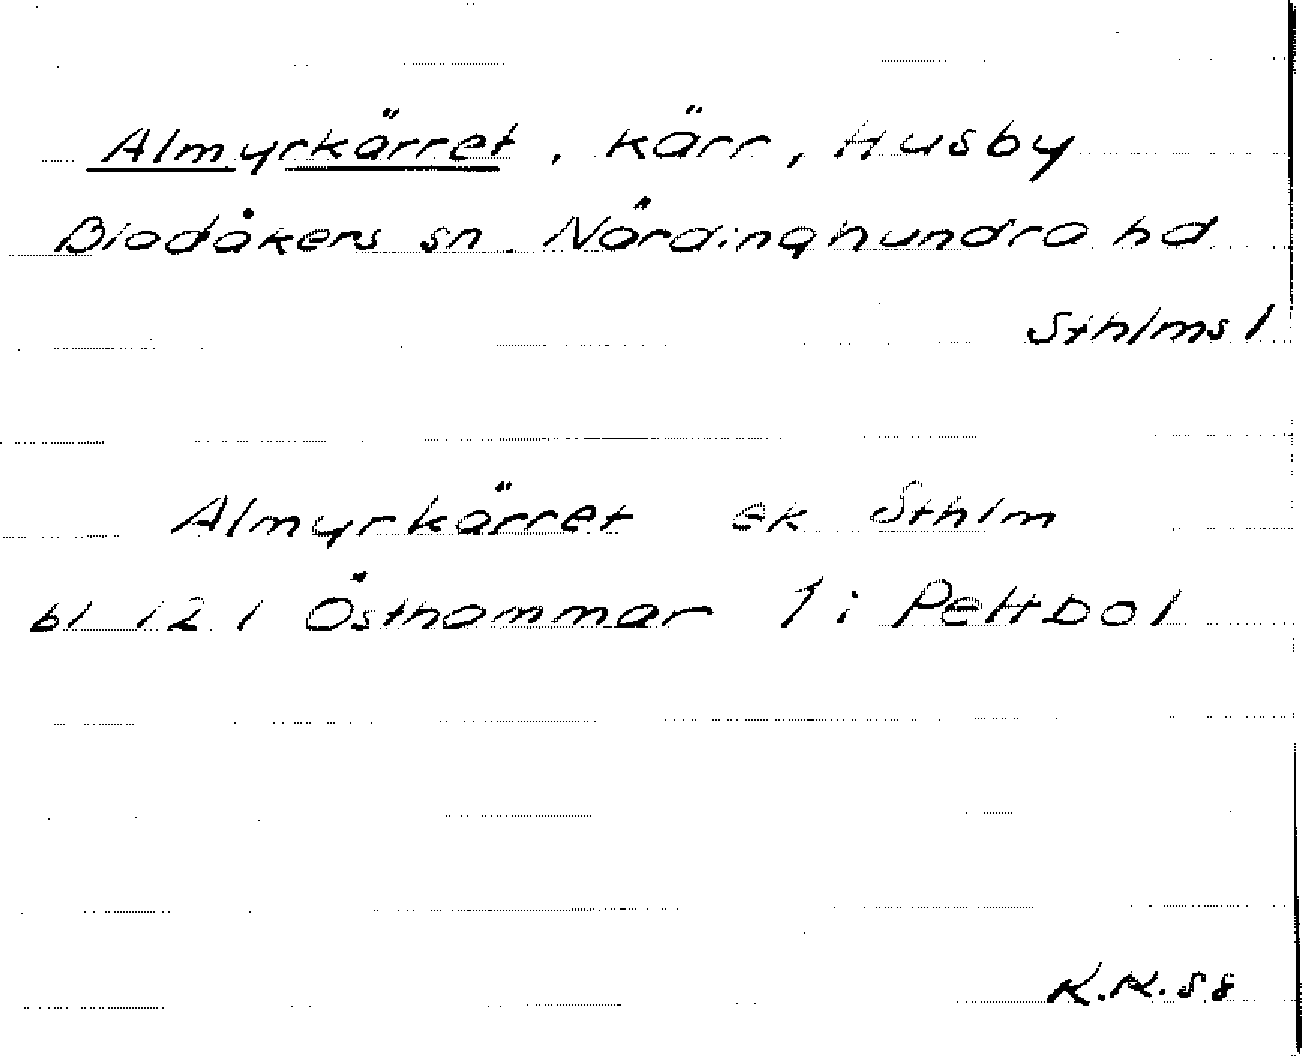 Almyrkärret, kärr, Husby
Blodåkers sn. Närdinghundra hd
Sthlms l
Almyrkärret ek Sthlm
bl 121 Östhammar 1 i Pettbol
K.K. 58